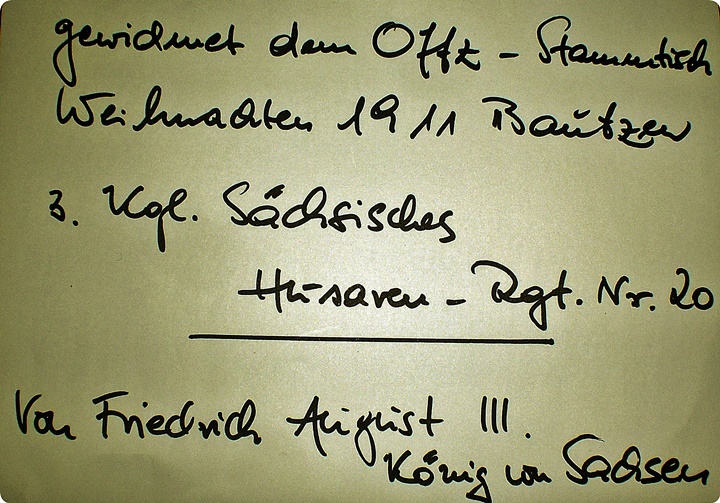 gewidmet dem Offz - Stammtisch
Weihnachten 1911 Bautzen
3. Kgl. Sächsisches
Husaren - Rgt. Nr. 20
Von Friedrich August III.
König von Sachsen